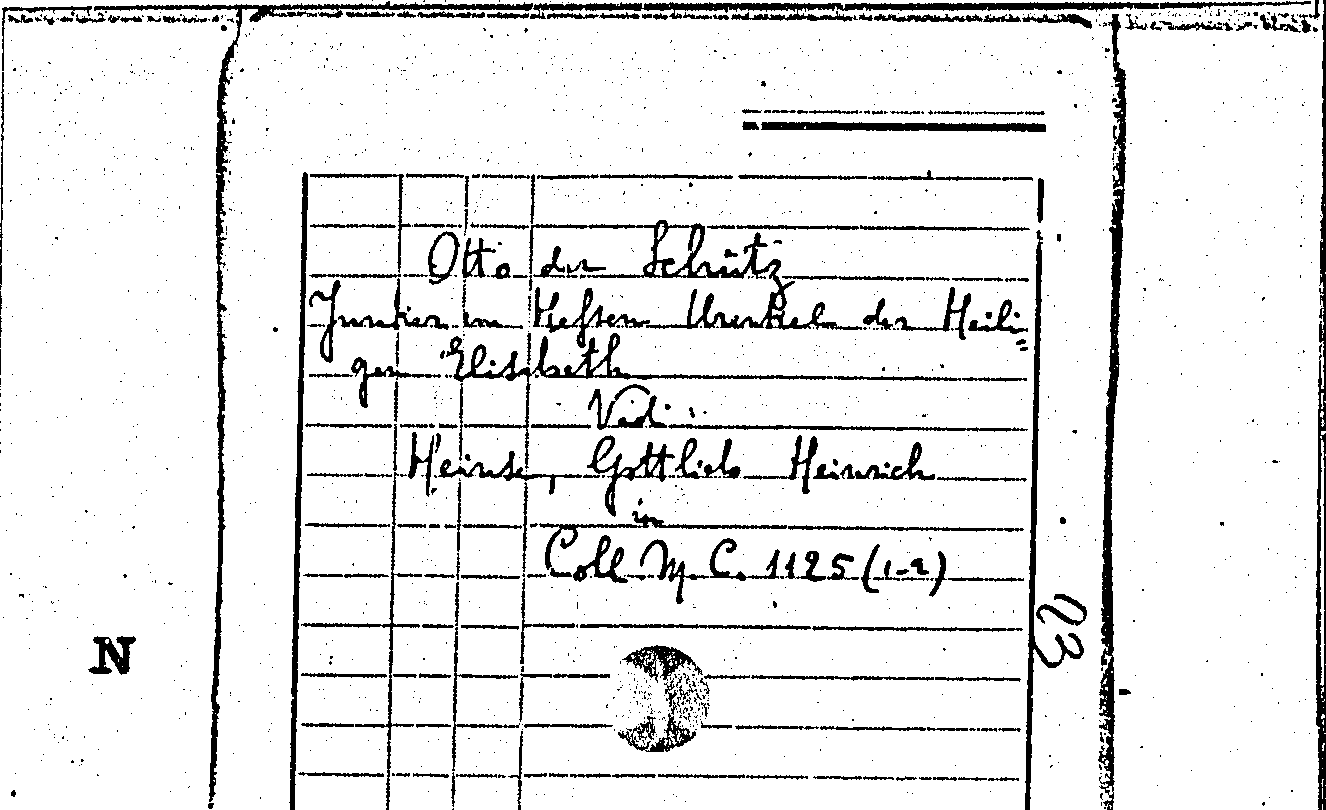 Otto der Schütz
Junker in Hessen Urenkel der Heili=
gen Elisabeth
Vedi:
Heinse, Gottlieb Heinrich
in
Coll. M. C. 1125 (1-2)
23
N